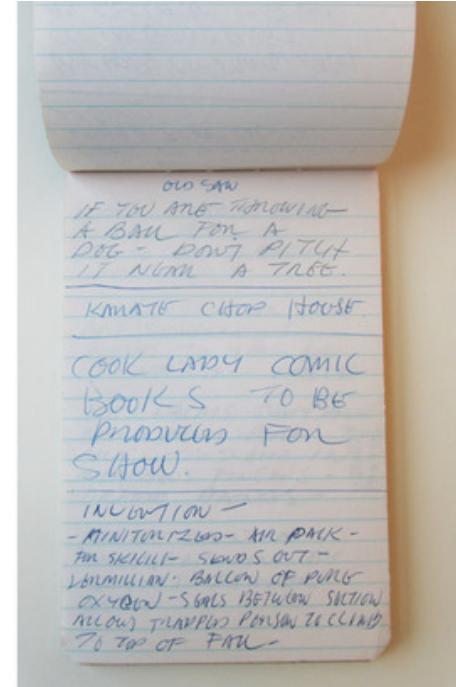 OLD SAW
IF YOU ARE THROWING
A BALL FOR A
DOG - DON'T PITCH
IT NEAR A TREE.
KARATE CHOP HOUSE
COOK LADY COMIC
BOOKS TO BE
PRODUCED FOR
SHOW.
INVENTION -
- MINITORIZED - AIR PACK -
FOR SKIING - SENDS OUT -
VERMILLIAN - BALLON OF PURE
OXYGEN - SEALS BETWEEN SECTION
ALLOWS TRAPPED PERSON TO CLIMB
TO TOP OF